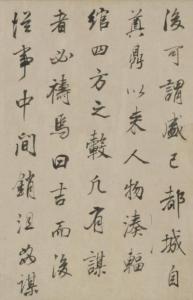 後可謂盛已都城自
奠鼎以来人物湊輻
綰四方之轂凡有謀
者必禱焉曰吉而後
從事中間銷沮謀